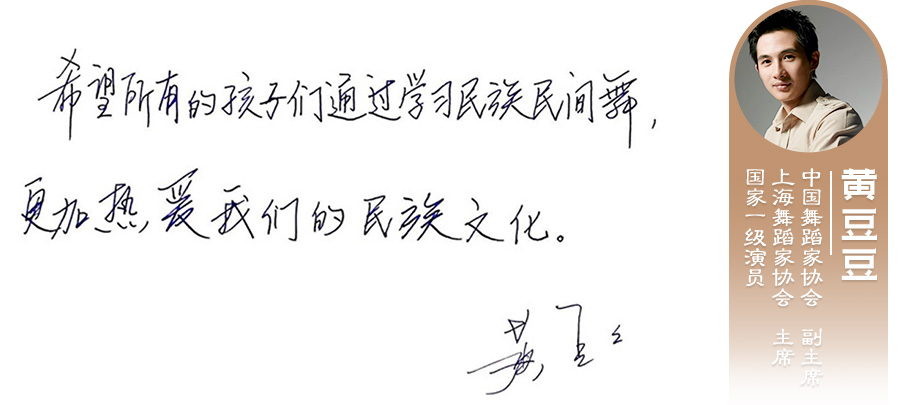 希望所有的孩子们通过学习民族民间舞，
更加热爱我们的民族文化。
黄豆豆
黄豆豆
中国舞蹈家协会 副主席
上海舞蹈家协会 主席
国家一级演员